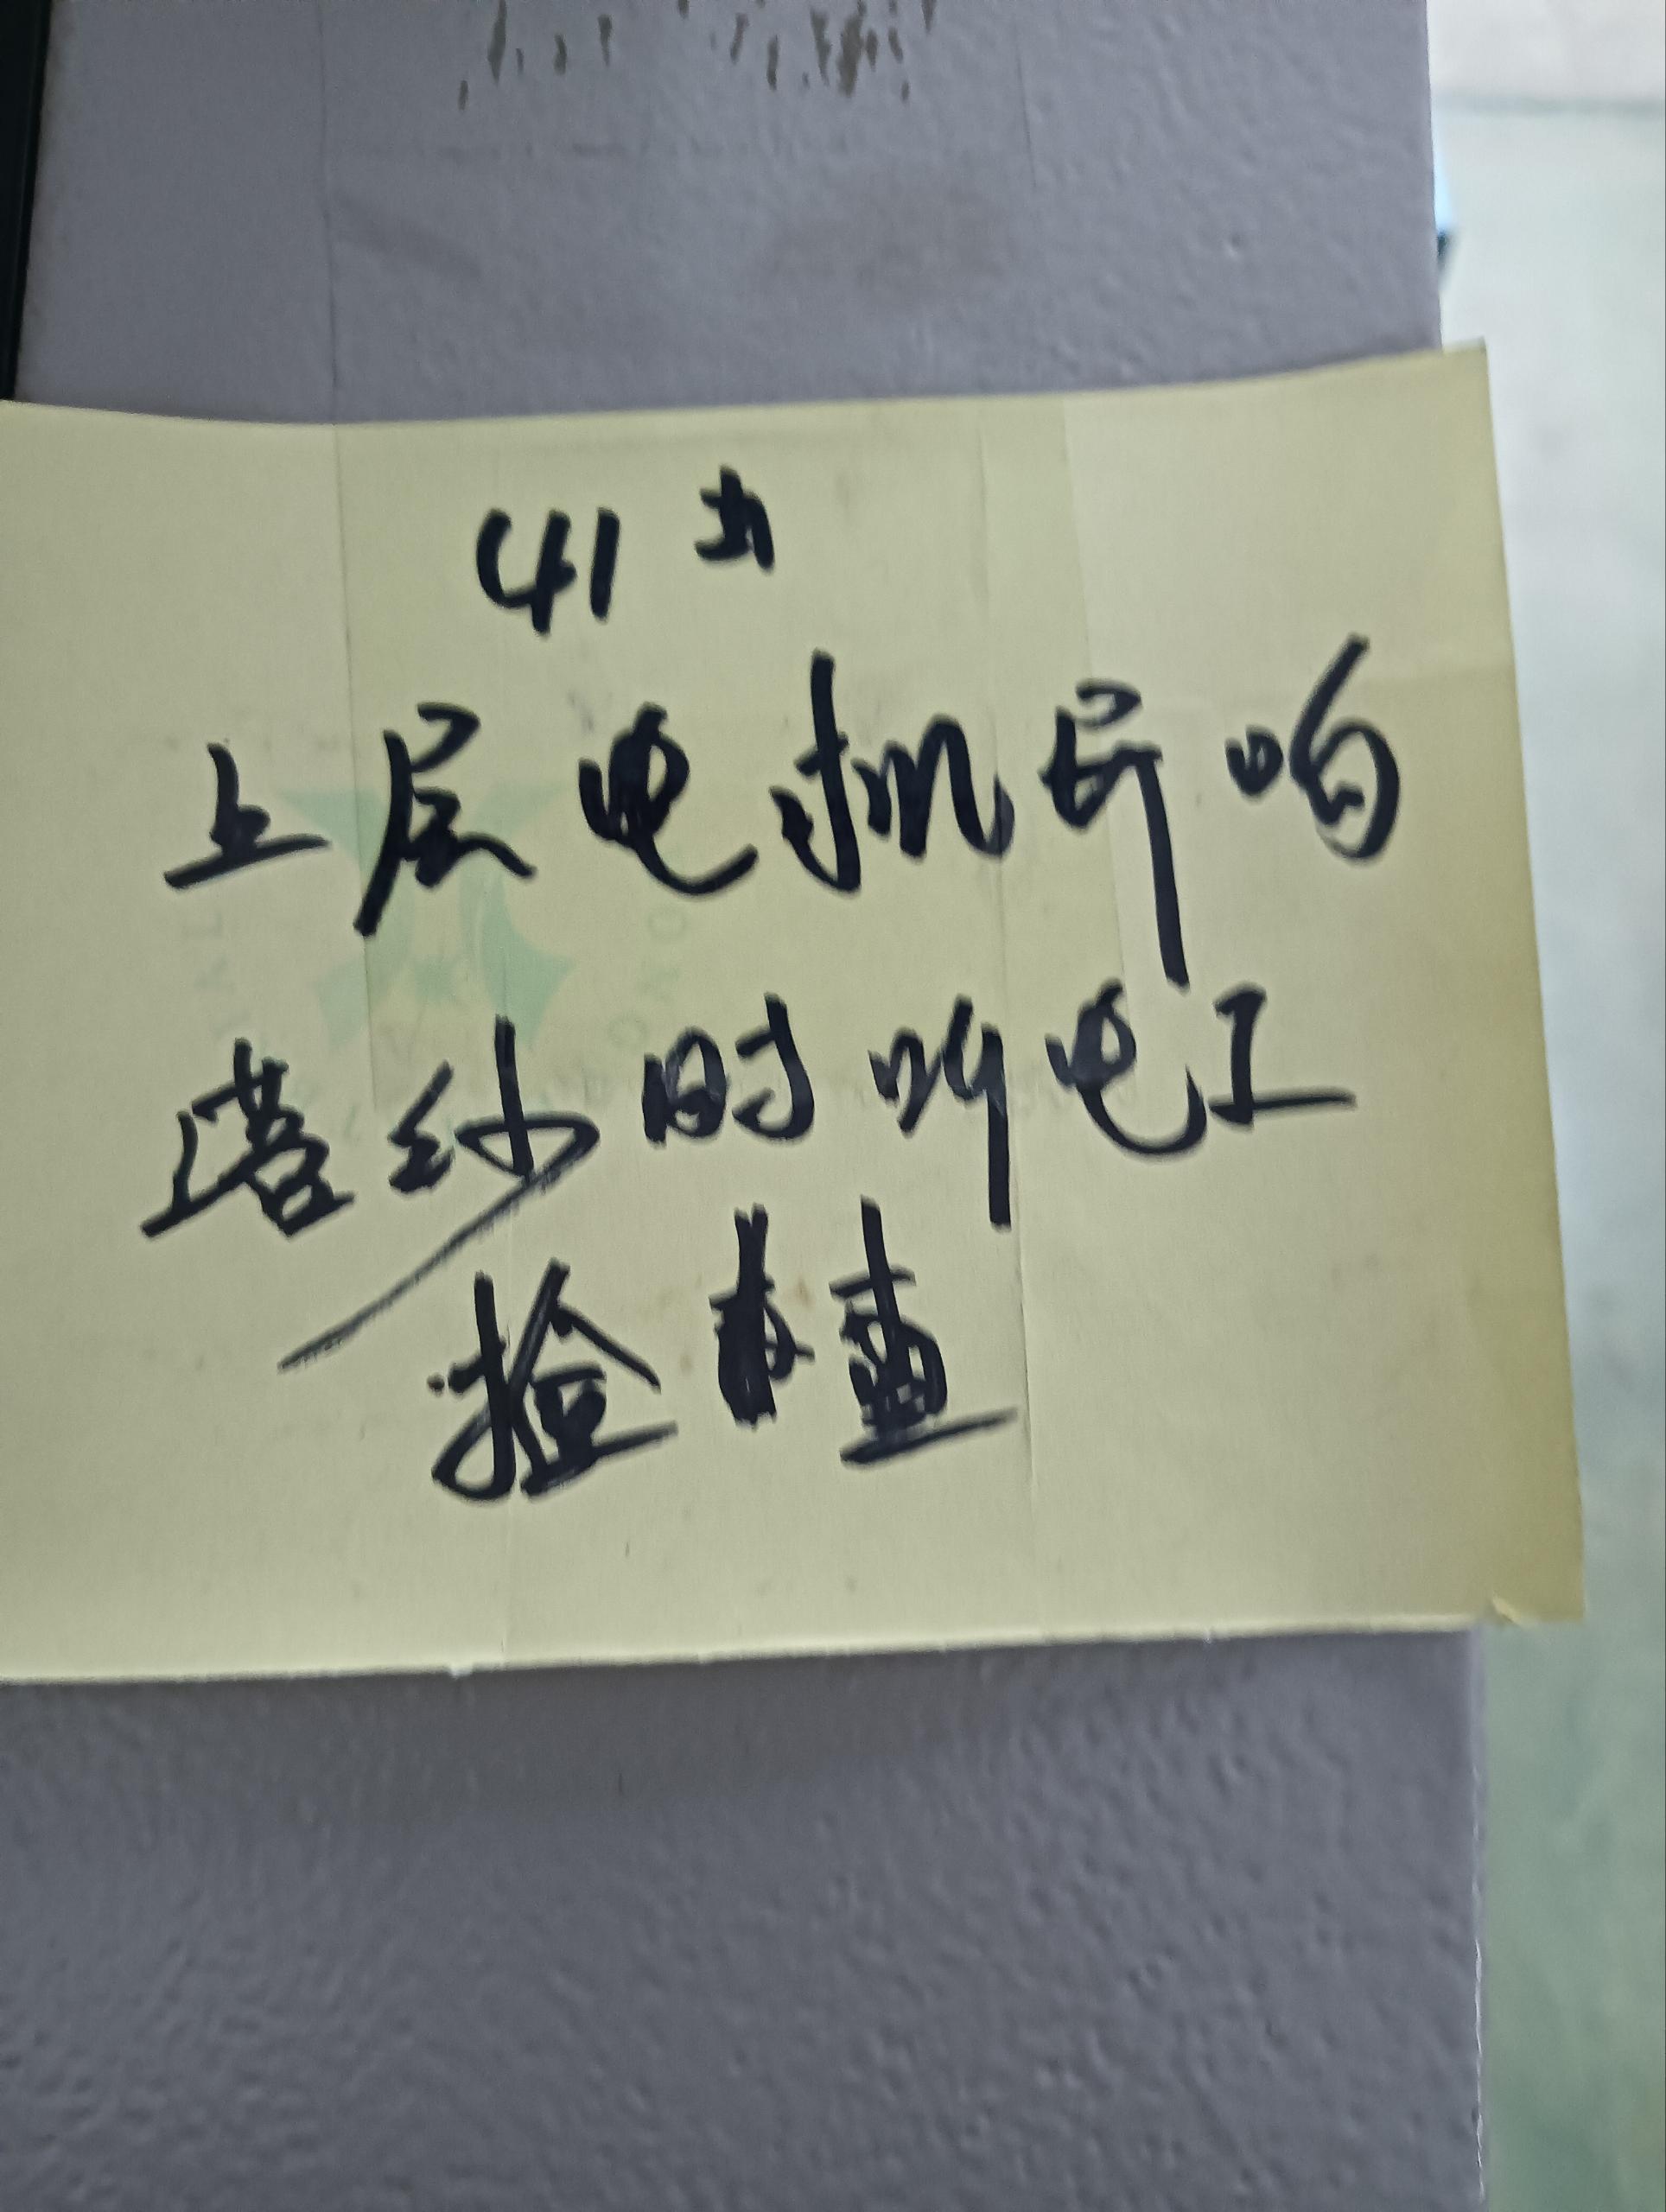 41#
上层电机异响
落纱时叫电工
检查